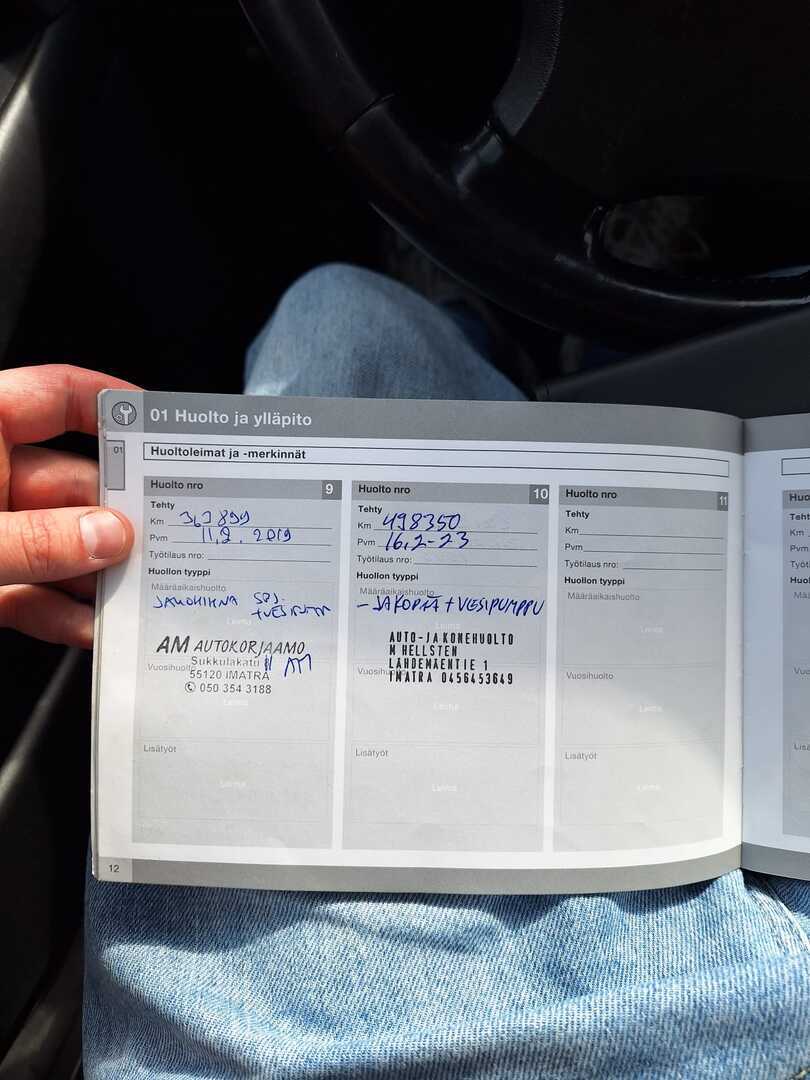 01 Huolto ja ylläpito
01
Huoltoleimat ja -merkinnät
Huolto nro 9
Tehty
Km 363899
Pvm 11,2. 2019
Työtilaus nro:
Huollon tyyppi
Määräaikaishuolto
JAKOHIHNA SRJ.
Leima
AM AUTOKORJAAMO
Sukkulakatu 11 AM
Vuosihuolto
55120 IMATRA
✆ 050 354 3188
Leima
Lisätyöt
Leima
12
Huolto nro 10
Tehty
Km 498350
Pvm 16,2-23
Työtilaus nro:
Huollon tyyppi
Määräaikaishuolto
- JAKOPÄÄ + VESIPUMPPU
Leima
AUTO-JA KONEHUOLTO
M HELLSTEN
LAHDEMAENTIE 1
Vuosihuolto
IMATRA 0456453649
Leima
Lisätyöt
Leima
Huolto nro 11
Tehty
Km
Pvm
Työtilaus nro:
Huollon tyyppi
Määräaikaishuolto
Leima
Vuosihuolto
Leima
Lisätyöt
Leima